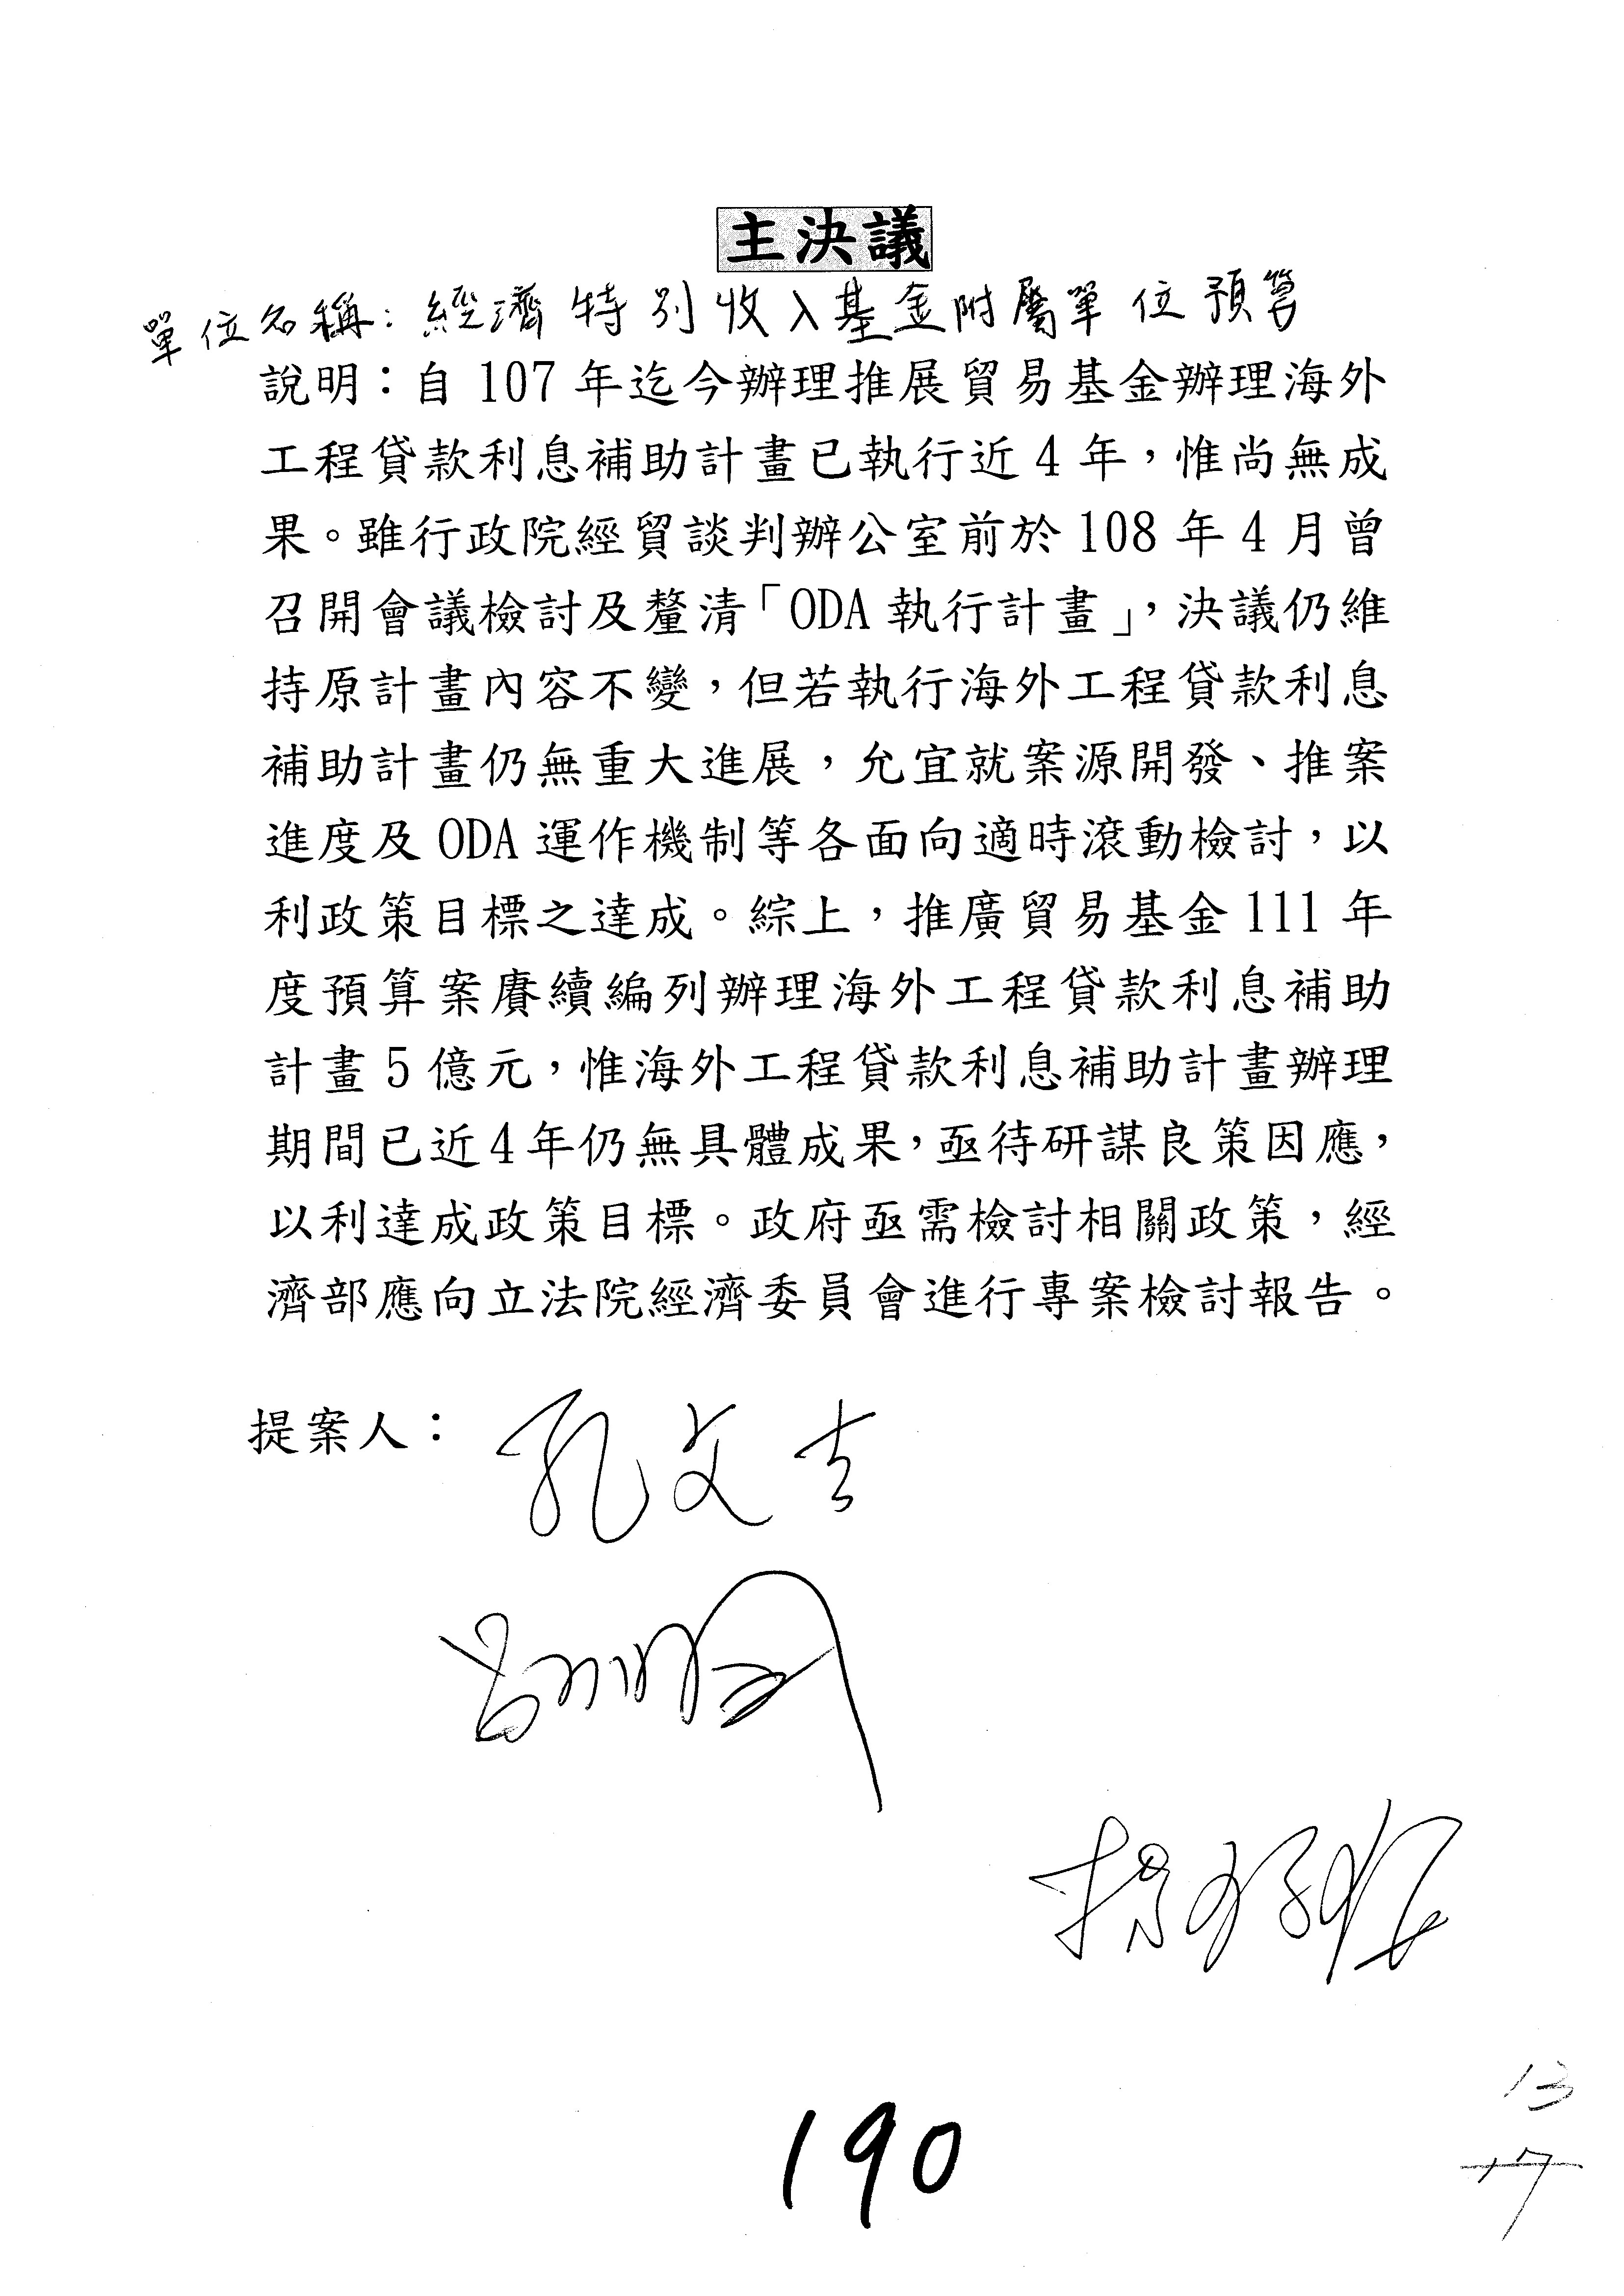 主決議
單位名稱：經濟特別收入基金附屬單位預算
說明：自 107 年迄今辦理推展貿易基金辦理海外
工程貸款利息補助計畫已執行近 4 年，惟尚無成
果。雖行政院經貿談判辦公室前於 108 年 4 月曾
召開會議檢討及釐清「ODA 執行計畫」，決議仍維
持原計畫內容不變，但若執行海外工程貸款利息
補助計畫仍無重大進展，允宜就案源開發、推案
進度及 ODA 運作機制等各面向適時滾動檢討，以
利政策目標之達成。綜上，推廣貿易基金 111 年
度預算案賡續編列辦理海外工程貸款利息補助
計畫 5 億元，惟海外工程貸款利息補助計畫辦理
期間已近 4 年仍無具體成果，亟待研謀良策因應，
以利達成政策目標。政府亟需檢討相關政策，經
濟部應向立法院經濟委員會進行專案檢討報告。
提案人：孔文吉
13
17
190